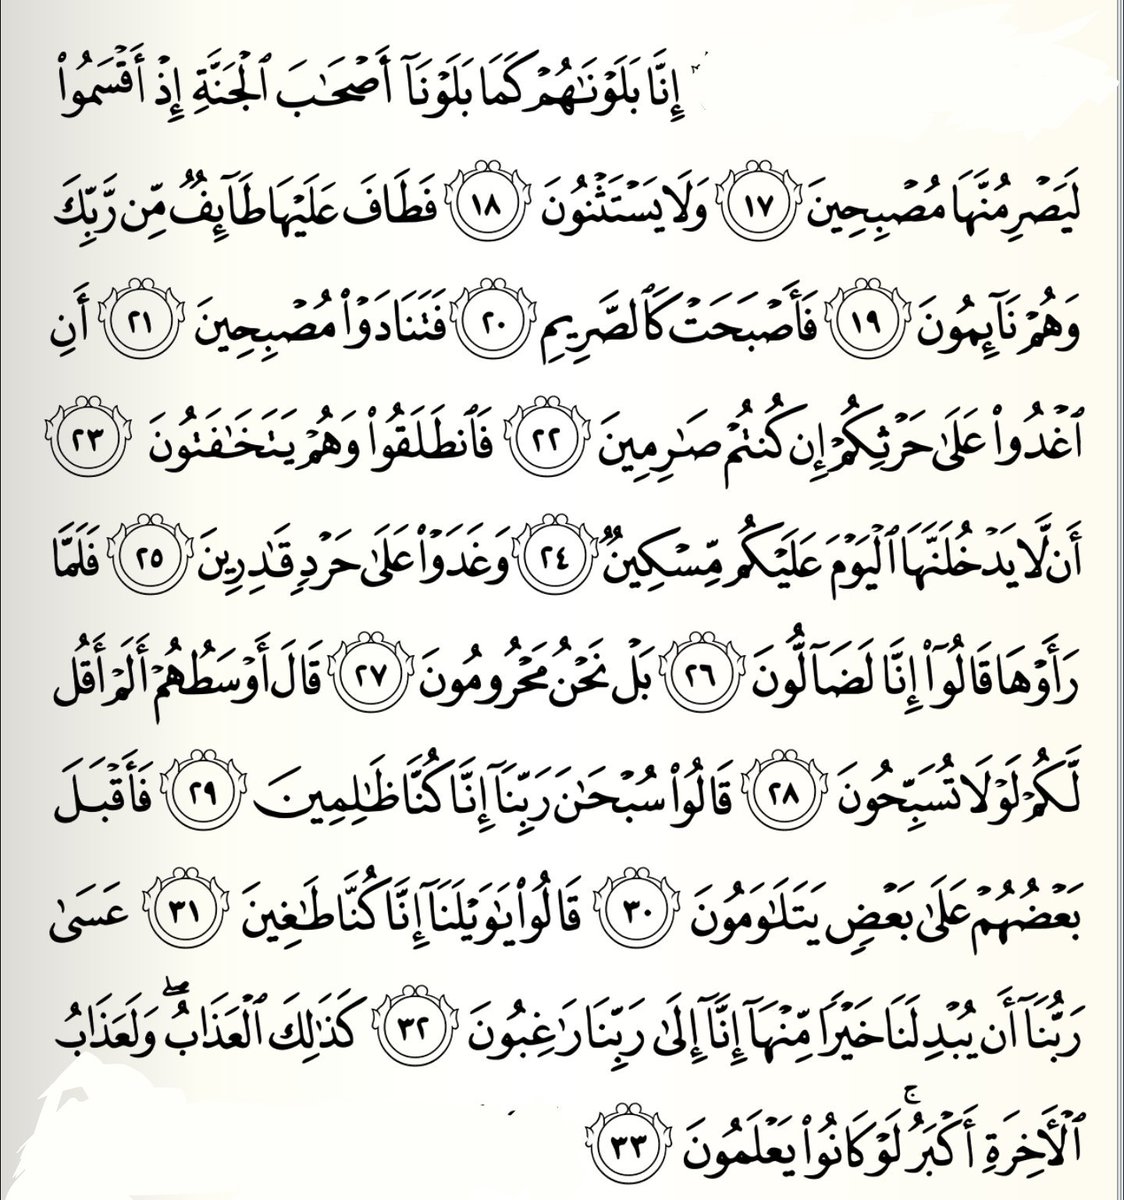 إِنَّا بَلَوْنَٰهُمْ كَمَا بَلَوْنَآ أَصْحَٰبَ ٱلْجَنَّةِ إِذْ أَقْسَمُوا۟
لَيَصْرِمُنَّهَا مُصْبِحِينَ ١٧ وَلَا يَسْتَثْنُونَ ١٨ فَطَافَ عَلَيْهَا طَآئِفٌ مِّن رَّبِّكَ
وَهُمْ نَآئِمُونَ ١٩ فَأَصْبَحَتْ كَٱلصَّرِيمِ ٢٠ فَتَنَادَوْا۟ مُصْبِحِينَ ٢١ أَنِ
ٱغْدُوا۟ عَلَىٰ حَرْثِكُمْ إِن كُنتُمْ صَٰرِمِينَ ٢٢ فَٱنطَلَقُوا۟ وَهُمْ يَتَخَٰفَتُونَ ٢٣
أَن لَّا يَدْخُلَنَّهَا ٱلْيَوْمَ عَلَيْكُم مِّسْكِينٌ ٢٤ وَغَدَوْا۟ عَلَىٰ حَرْدٍ قَٰدِرِينَ ٢٥ فَلَمَّا
رَأَوْهَا قَالُوٓا۟ إِنَّا لَضَآلُّونَ ٢٦ بَلْ نَحْنُ مَحْرُومُونَ ٢٧ قَالَ أَوْسَطُهُمْ أَلَمْ أَقُل
لَّكُمْ لَوْلَا تُسَبِّحُونَ ٢٨ قَالُوا۟ سُبْحَٰنَ رَبِّنَآ إِنَّا كُنَّا ظَٰلِمِينَ ٢٩ فَأَقْبَلَ
بَعْضُهُمْ عَلَىٰ بَعْضٍ يَتَلَٰوَمُونَ ٣٠ قَالُوا۟ يَٰوَيْلَنَآ إِنَّا كُنَّا طَٰغِينَ ٣١ عَسَىٰ
رَبُّنَآ أَن يُبْدِلَنَا خَيْرًا مِّنْهَآ إِنَّآ إِلَىٰ رَبِّنَا رَٰغِبُونَ ٣٢ كَذَٰلِكَ ٱلْعَذَابُ ۖ وَلَعَذَابُ
ٱلْـَٔاخِرَةِ أَكْبَرُ ۚ لَوْ كَانُوا۟ يَعْلَمُونَ ٣٣